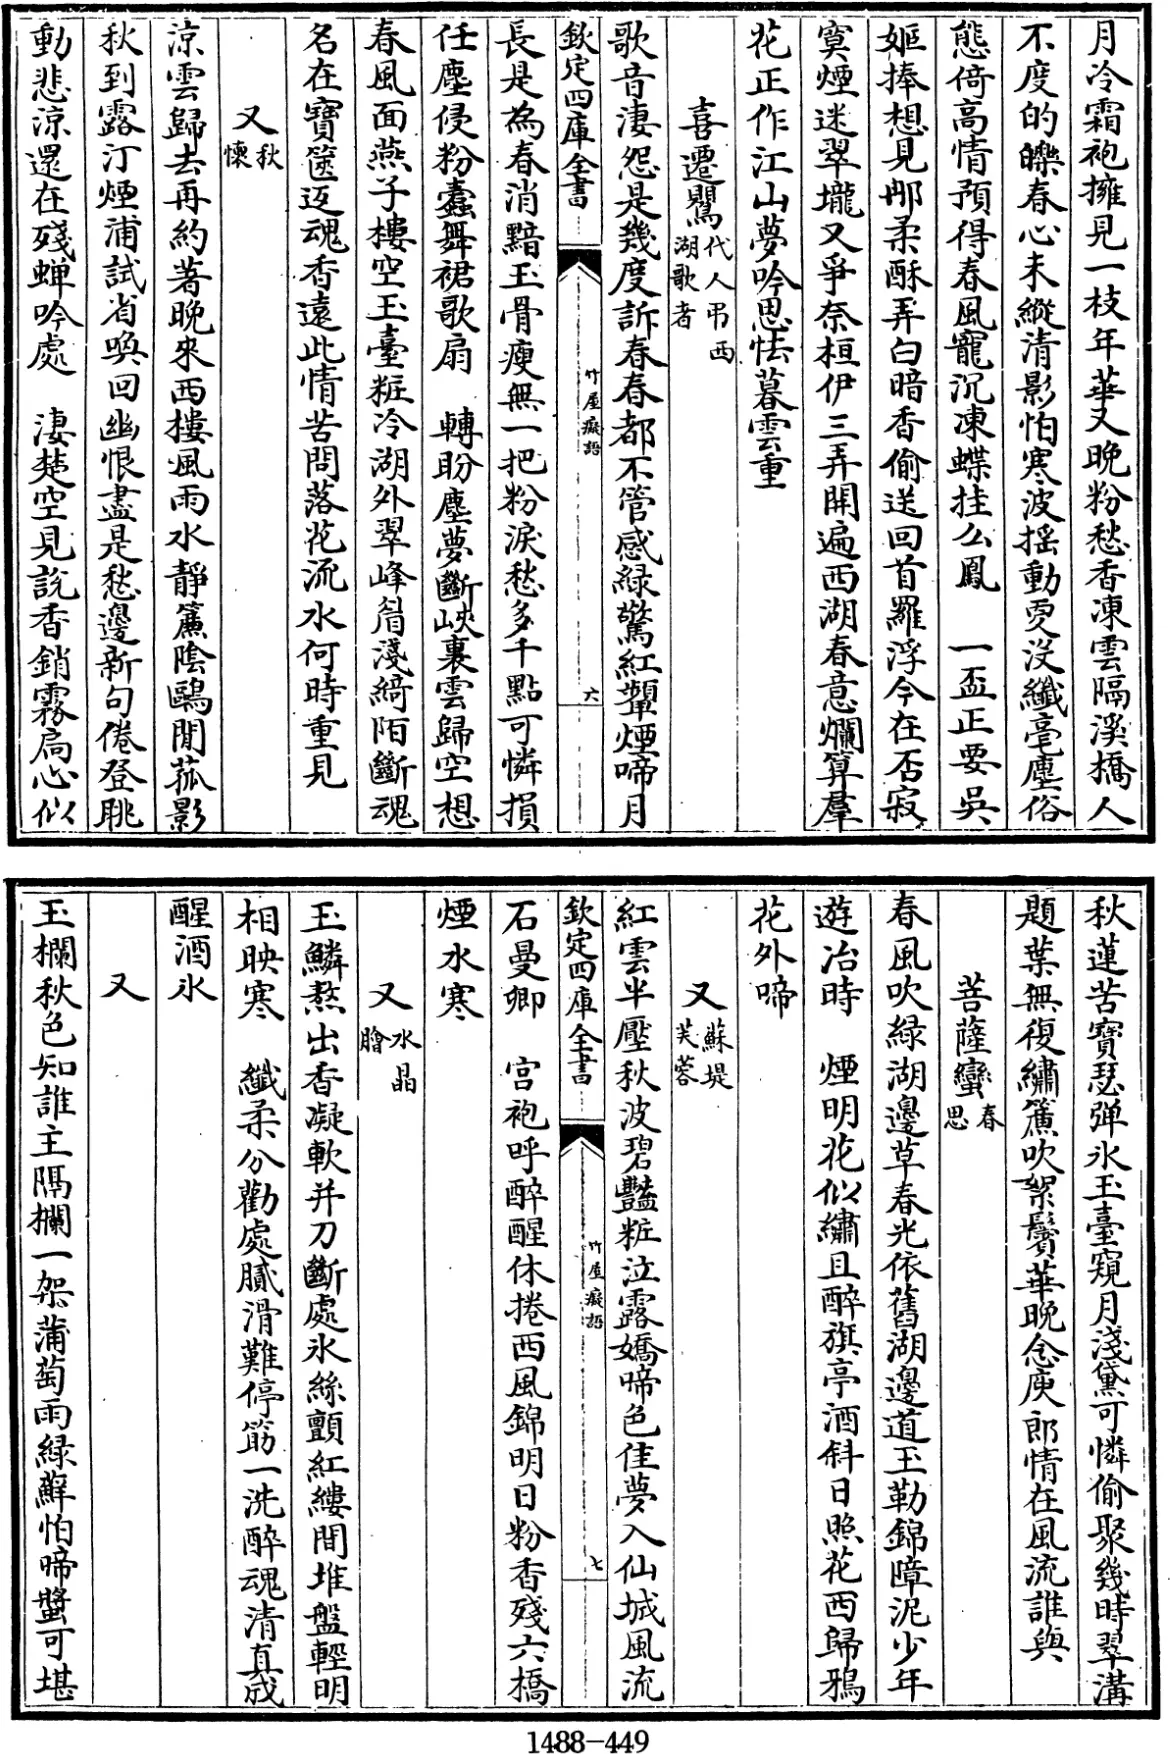 月冷霜袍擁見一枝年華又晚粉愁香凍雲隔溪橋人
不度的皪春心未縱清影怕寒波揺動更没纎毫塵俗
態倚高情預得春風寵沉凍蝶挂么鳳　一盃正要吳
姬捧想見那柔酥弄白暗香偷送回首羅浮今在否寂
寞煙迷翠壠又爭奈桓伊三弄開遍西湖春意爛算羣
花正作江山夢吟思怯暮雲重
喜遷鶯代人弔西湖歌者
歌音淒怨是幾度訴春春都不管感緑驚紅顰煙啼月
欽定四庫全書
竹屋癡語
六
長是為春消黯玉骨瘦無一把粉淚愁多千點可憐損
任塵侵粉蠹舞裙歌扇　轉盼塵夢斷峽裏雲歸空想
春風面燕子樓空玉臺粧冷湖外翠峰眉淺綺陌斷魂
名在寶篋返魂香遠此情苦問落花流水何時重見
又秋懷
涼雲歸去再約著晚來西樓風雨水靜簾陰鷗閒菰影
秋到露汀煙浦試省喚回幽恨盡是愁邊新句倦登眺
動悲涼還在殘蟬吟處　淒楚空見説香銷霧扃心似
秋蓮苦寶瑟彈氷玉臺窺月淺黛可憐偷聚幾時翠溝
題葉無復繡簾吹絮鬢華晚念庾郎情在風流誰與
菩薩蠻春思
春風吹緑湖邊草春光依舊湖邊道玉勒錦障泥少年
遊冶時　煙明花似繡且醉旗亭酒斜日照花西歸鴉
花外啼
又蘇堤芙蓉
紅雲半壓秋波碧豔粧泣露嬌啼色佳夢入仙城風流
欽定四庫全書
竹屋癡語
七
石曼卿　宮袍呼醉醒休捲西風錦明日粉香殘六橋
煙水寒
又水晶膾
玉鱗熬出香凝軟并刀斷處氷絲顫紅縷間堆盤輕明
相映寒　纎柔分勸處膩滑難停筯一洗醉魂清真成
醒酒氷
又
玉欄秋色知誰主隔欄一架蒲萄雨緑蘚怕啼螿可堪
1488-449